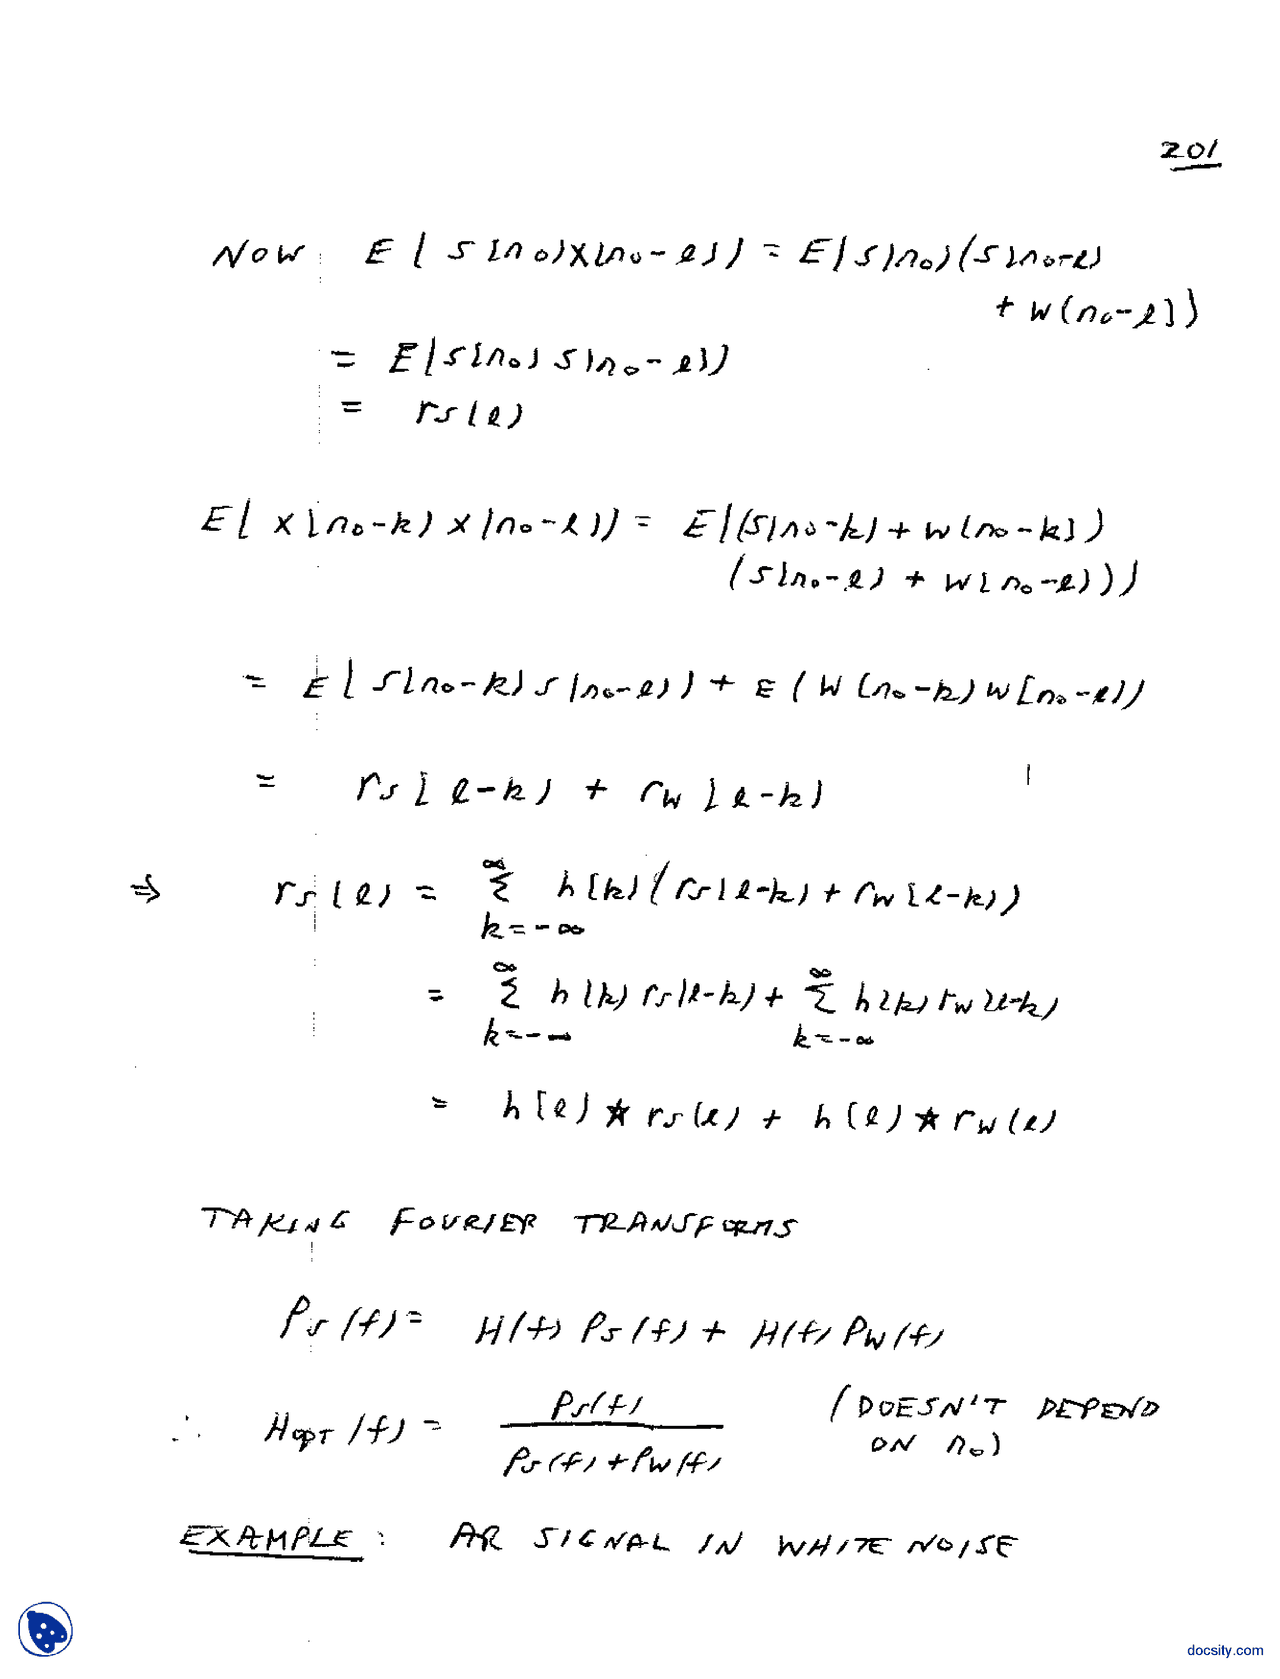 201
NOW E(s[n₀]x[n₀-l]) = E(s[n₀](s[n₀-l]
+ w[n₀-l]))
= E(s[n₀]s[n₀-l])
= rs[l]
E(x[n₀-k]x[n₀-l]) = E((s[n₀-k] + w[n₀-k])
(s[n₀-l] + w[n₀-l]))
= E(s[n₀-k]s[n₀-l]) + E(w[n₀-k]w[n₀-l])
= rs[l-k] + rw[l-k]
⇒ rs[l] = ∞ Σ k=-∞ h[k](rs[l-k] + rw[l-k])
= ∞ Σ k=-∞ h[k]rs[l-k] + ∞ Σ k=-∞ h[k]rw[l-k]
= h[l] ★ rs[l] + h[l] ★ rw[l]
TAKING FOURIER TRANSFORMS
Ps(f) = H(f)Ps(f) + H(f)Pw(f)
∴ HOPT(f) = Ps(f) / (Ps(f)+Pw(f)) (DOESN'T DEPEND
ON n₀)
EXAMPLE: AR SIGNAL IN WHITE NOISE
docsity.com